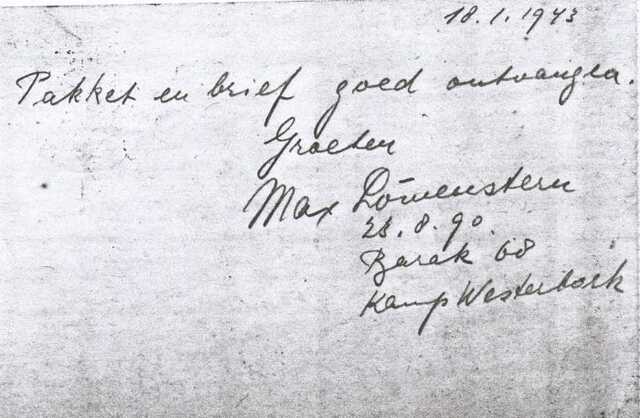 18.1.1943
Pakket en brief goed ontvangen.
Groeten
Max Löwenstern
23.8.90.
Barak 68
Kamp Westerbork